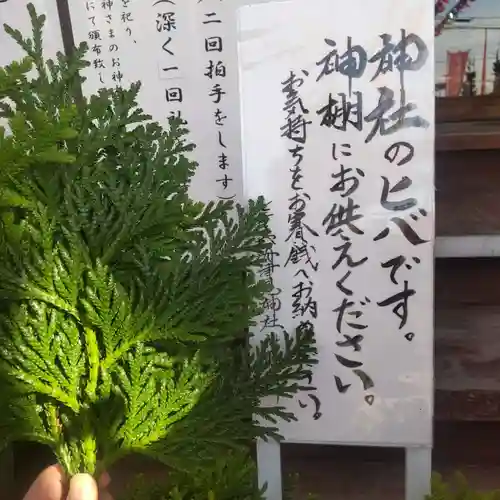 神社のヒバです。
神棚にお供えください。
お気持ちをお賽銭へお納め
神社
二回拍手をします
(深く一回礼
を祀り、
神さまのお神
にて頒布